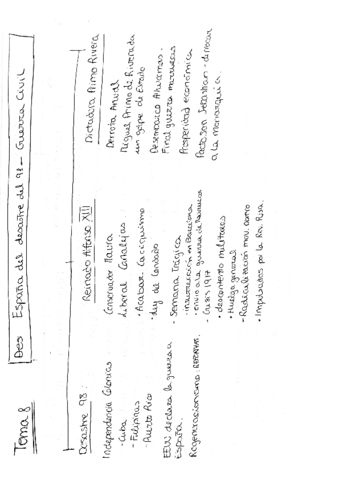 Tema 8
Des España del desastre del 98 – Guerra Civil
Desastre 98:
Independencia Colonias
- Cuba
- Filipinas
- Puerto Rico
EEUU declara la guerra a
España.
Regeneracionismo:
Reinado Alfonso XIII
Conservador Maura
Liberal Canalejas
• Acabar caciquismo
• Ley del candado
- Semana Trágica
- insurrección en Barcelona
- envio a la guerra de Marruecos
- Crisis 1917
• descontento militares
• Huelga general
- Radicalización mov. obrero
• Impulsados por la Rev. Rusa.
Dictadura Primo Rivera
Derrota Anual
Miguel Primo de Rivera da
un golpe de Estado
Desembarco Alhucemas.
Final guerra marruecos
Prosperidad económica
Pacto San Sebastian - derrocar
a la monarquía.